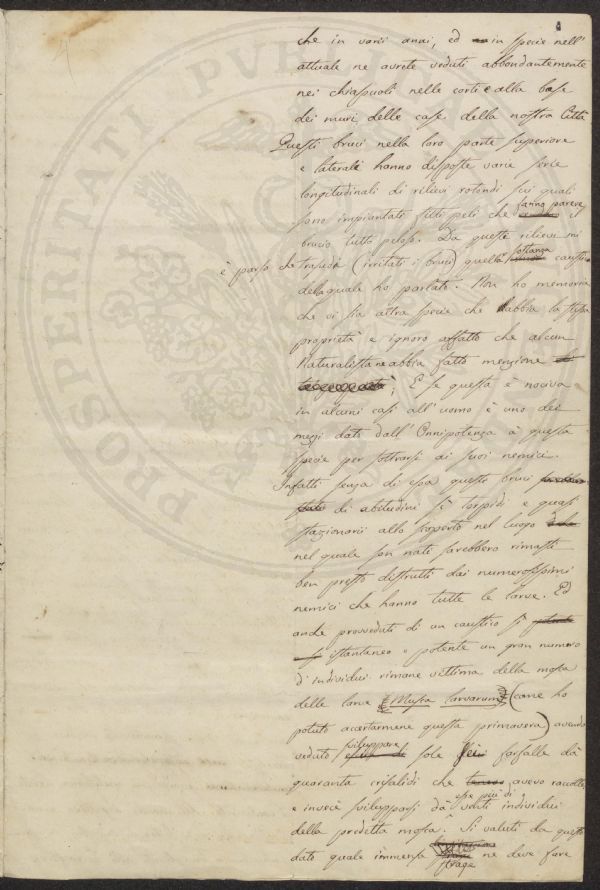 che in varii anni, ed in specie nell'
attuale ne avrete veduti abbondantemente
nei chiassuoli nelle corti e alla base
dei muri delle case della nostra Città
Questi bruci nella loro parte superiore
e laterale hanno disposte varie serie
longitudinali di rilievi rotondi sui quali
sono impiantati fitti peli che fanno parere il
brucio tutto peloso. Da questi rilievi mi
è parso che trasuda (irritati i bruci) quella sostanza caustica
della quale ho parlato. Non ho memoria
che vi sia altra specie che abbia la stessa
proprietà e ignoro affatto che alcun
Naturalista ne abbia fatto menzione
; E se questa è nociva
in alcuni casi all'uomo è uno dei
mezzi dato dall'Onnipotenza à questa
specie per sottrarsi ai suoi nemici.
Infatti senza di essa questi bruci
di abitudini sì torpidi e quasi
stazionarii allo scoperto nel luogo
nel quale son nati sarebbero rimasti
ben presto distrutti dai numerosissimi
nemici che hanno tutte le larve. Ed
anche provveduti di un caustico sì
istantaneo e potente un gran numero
d'individui rimane vittima della mosca
delle larve (Musca larvarum) (come ho
potuto accertarmene questa primavera) avendo
veduto sviluppare sole sei farfalle da
quaranta crisalidi che avevo raccolte
e invece svilupparsi da esse più di venti individui
della predetta mosca. Si valuti da questo
dato quale immensa strage ne deve fare
PROSPERITATI PVBLICAE